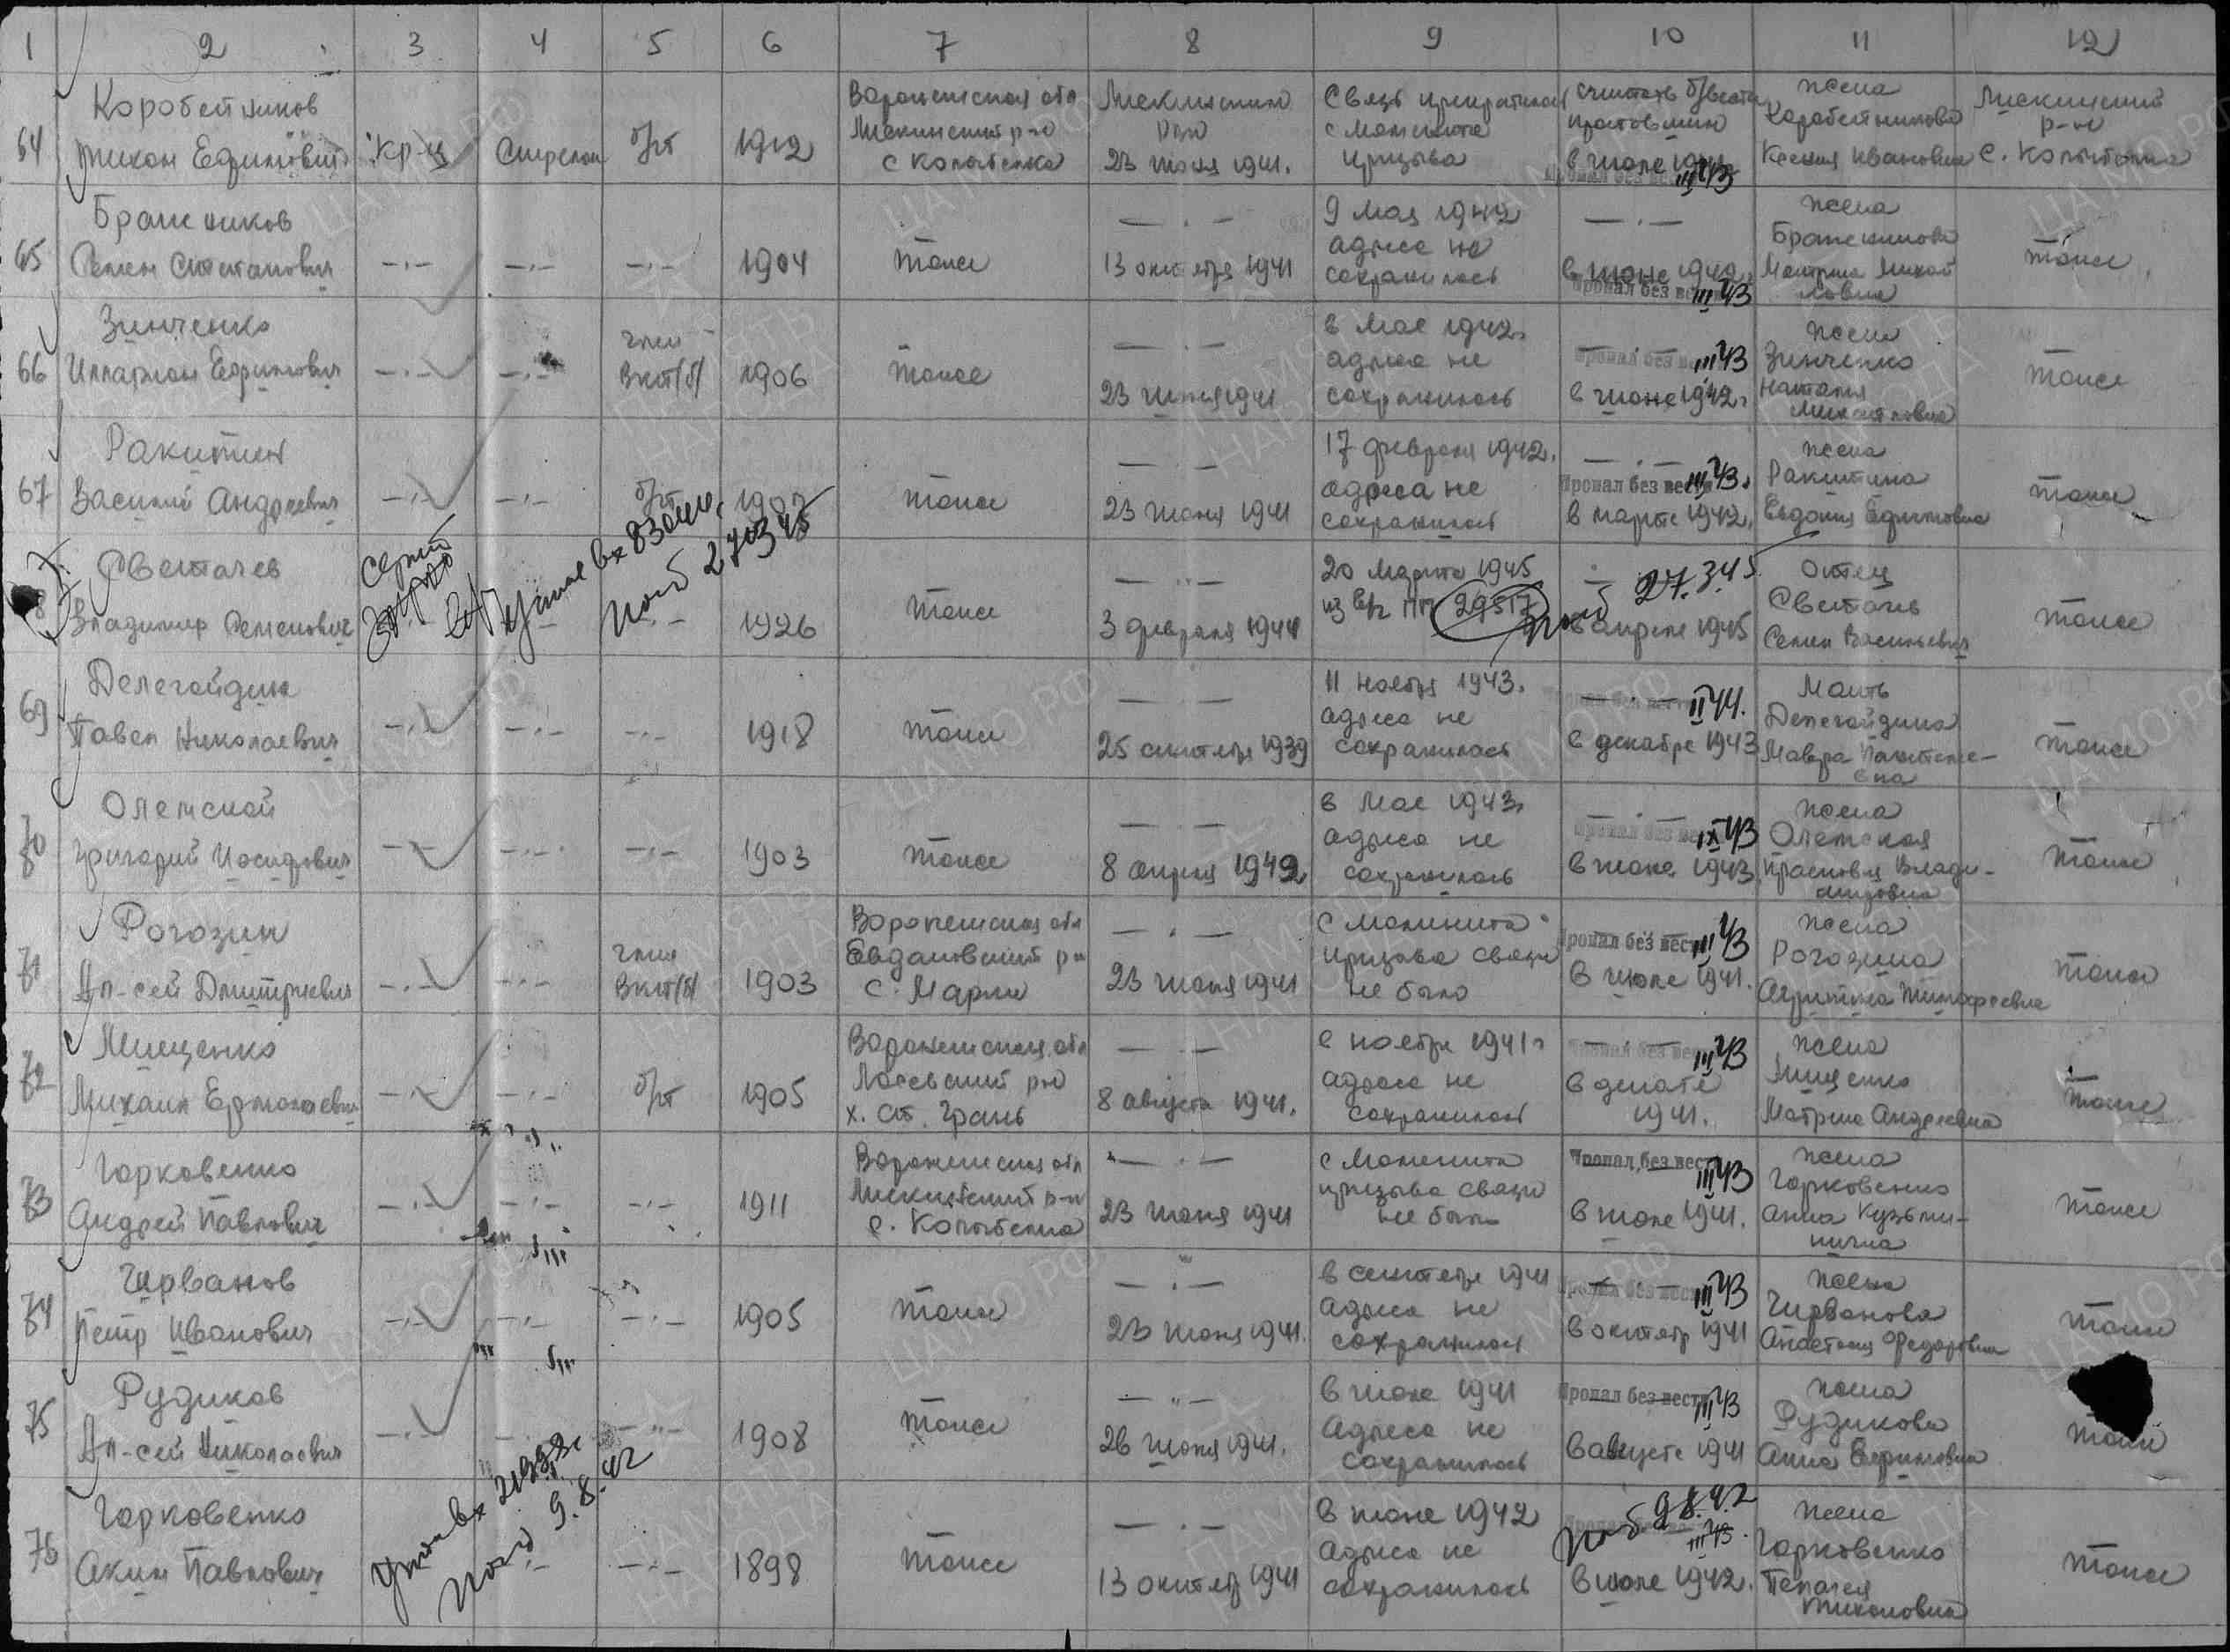 1 2 3 4 5 6 7 8 9 10 11 12
64 Коробейников Тихон Ефимович кр-ц Стрелок б/п 1912
Воронежская обл
Лискинский р-н
с Колыбелка
Лискинским
рвк
23 июня 1941.
Связь прекратилась
с момента
призыва
считать б/вести
пропавшим
в июле 1941
Пропал без вести III 43
жена
Коробейникова
Ксения Ивановна
Лискинский
р-н
с. Колыбелка
65 Бражников Семен Степанович —·— —·— —·— 1904 тоже
—·—
13 октября 1941
9 мая 1942
адреса не
сохранилось
—·—
в июне 1942
Пропал без вести III 43
жена
Бражникова
Матрена Михай
ловна
тоже
66 Зинченко Ипатмон Ефимович —·— —·—
член
ВКП(б)
1906 тоже
—·—
23 июня 1941
в мае 1942
адреса не
сохранилось
Пропал без вести III 43
в июне 1942.
жена
Зинченко
Наталья
Михайловна
тоже
67 Ракитин Василий Андреевич —·— —·— б/п 1907 тоже
— —
23 июня 1941
17 февраля 1942.
адреса не
сохранилось
—·—
Пропал без вести III 43.
в марте 1942.
жена
Ракитина
Евдокия Ефимовна
тоже
Светачев
Владимир Семенович
1926 тоже
—··—
3 февраля 1944
20 марта 1945
из в/ч ПП 29517
27.3.45
погиб
в апреле 1945
отец
Светачев
Семен Васильевич
тоже
69 Делегойдин Павел Николаевич —·— —·— —·— 1918 тоже
— —
25 сентября 1939
11 ноября 1943.
адреса не
сохранилось
—·— II 44.
в декабре 1943
Мать
Делегойдина
Мавра
тоже
70 Олемской Григорий Иосифович —·— —·— —·— 1903 тоже
— —
8 апреля 1942
в мае 1943.
адреса не
сохранилось
—·—
Пропал без вести IX 43
в июне 1943
жена
Олемская
Прасковья Влади-
мировна
тоже
71 Рогозин Ал-сей Дмитриевич —·— —·—
член
ВКП(б)
1903
Воронежская обл
Евдаковский р-н
с. Марки
—·—
23 июня 1941
с момента
призыва связи
не было
Пропал без вести III 43
в июле 1941.
жена
Рогозина
Агрипина Тимофеевна
тоже
72 Мищенко Михаил Ермолаевич —·— —·— б/п 1905
Воронежская обл
Лосевский р-н
х. Ст. Грань
— —
8 августа 1941.
с ноября 1941г
адреса не
сохранилось
Пропал без вести III 43
в декабре
1941.
жена
Мищенко
Матрена Андреевна
тоже
73 Горковенко Андрей Павлович —·— —·— —·— 1911
Воронежская обл
Лискинский р-н
с. Колыбелка
—·—
23 июня 1941
с момента
призыва связи
не было
Пропал без вести III 43
в июле 1941.
жена
Горковенко
Анна Кузьми-
нична
тоже
74 Чирванов Петр Иванович —·— —·— —·— 1905 тоже
—·—
23 июня 1941.
в сентябре 1941
адреса не
сохранилось
Пропал без вести III 43
в октябре 1941
жена
Чирванова
Анастасия Федоровна
тоже
75 Рудиков Ал-сей Николаевич —·— —··— 1908 тоже
—··—
26 июня 1941.
в июле 1941
Адреса не
сохранилось
Пропал без вести III 43
в августе 1941
жена
Рудикова
Анна Ефимовна
тоже
76 Горковенко Аким Павлович
погиб 9.8.42
—·— 1898 тоже
—·—
13 октября 1941
в июне 1942
Адреса не
сохранилось
погиб 9.8.42
III 43.
в июле 1942.
жена
Горковенко
Пелагея
Тихоновна
тоже